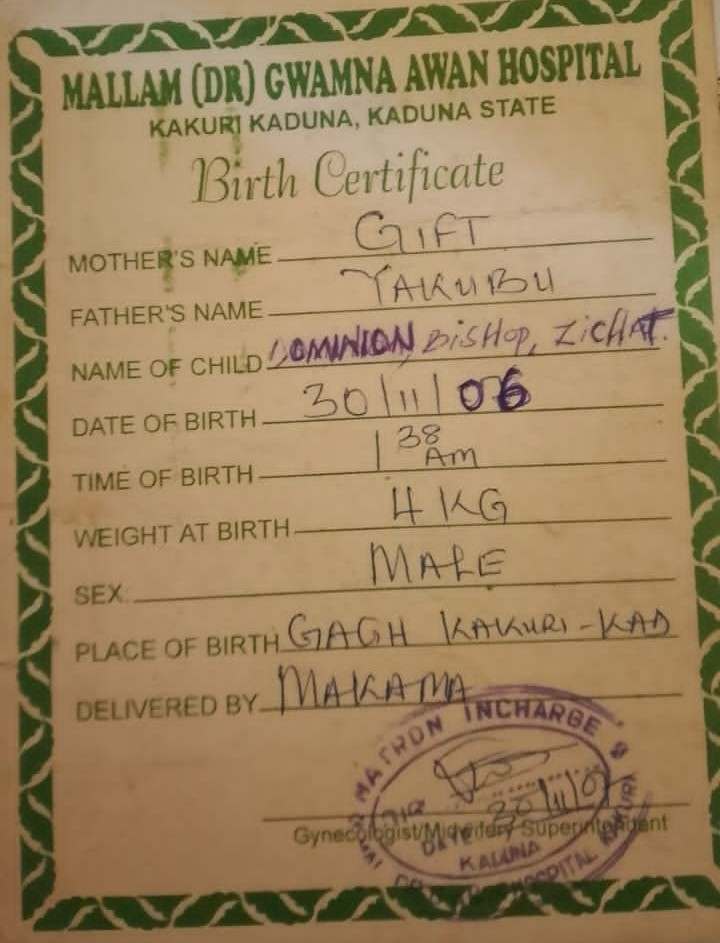 MALLAM (DR) GWAMNA AWAN HOSPITAL
KAKURI KADUNA, KADUNA STATE
Birth Certificate
MOTHER'S NAME GIFT
FATHER'S NAME YAKUBU
NAME OF CHILD DOMINION, BISHOP, ZICHAT.
DATE OF BIRTH 30/11/06
TIME OF BIRTH 1 38 AM
WEIGHT AT BIRTH 4 KG
SEX: MALE
PLACE OF BIRTH GAGH KAKURI-KAD
DELIVERED BY MAKAMA
MATRON INCHARGE
DATE 30/11/
Gynecologist/Midwifery Superintendent
KADUNA
HOSPITAL KAKURI